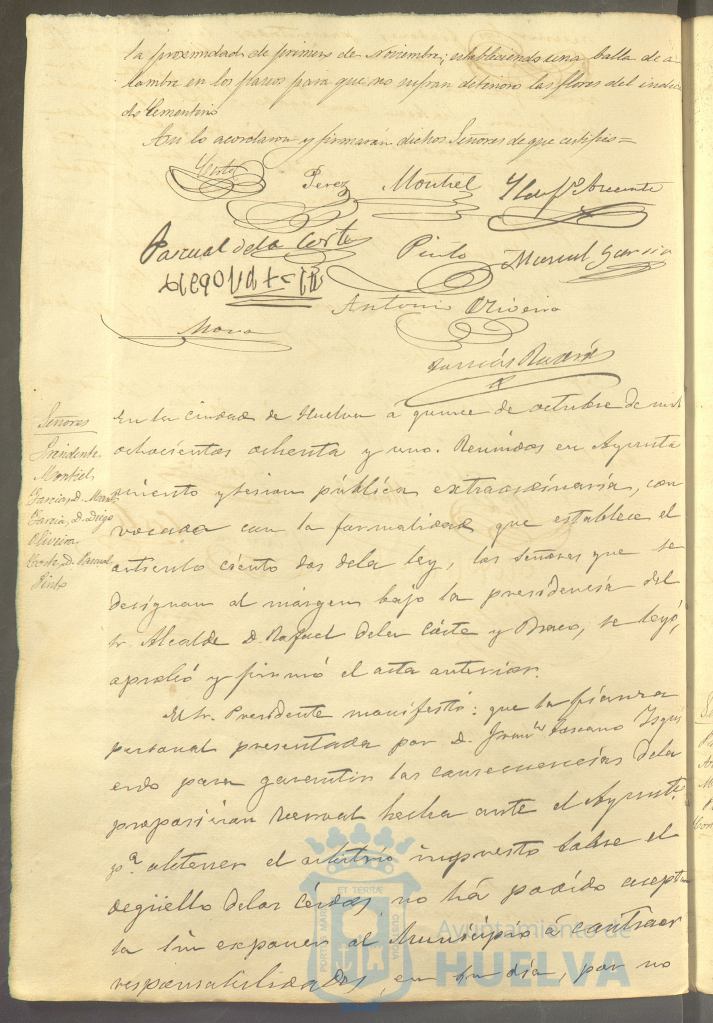 la proximidad de primero de Noviembre; estableciendo una balla de a
lambre en los paseos para que no sufran deterioro las flores del indica
do Cementerio
Así lo acordaron y firmarán dichos Señores de que certifico=
Corte Perez Montiel Yldefso
Pascual de la Corte Pinto Manuel Garcia
Antonio Oliveira
Mora
Señores
Presidente
Montiel
Garcia, D. Man
Garcia, D. Diego
Oliveira
Corte, D. Pascual
Pinto
En la ciudad de Huelva á quince de octubre de mil
ochocientos ochenta y uno. Reunidos en Ayunta
miento y sesion pública extraordinaria, con
vocada con la formalidad que establece el
articulo ciento dos dela ley, los Señores que se
designan al márgen bajo la presidencia del
Sr. Alcalde D. Rafael dela Córte y Bravo, se leyó,
aprobó y firmó el acta anterior.
El Sr. Presidente manifestó: que la fianza
personal presentada por D. Franco Toscano Yzqui
erdo para garantir las consecuencias dela
proposicion verval hecha ante el Ayunto
pa obtener el arbitrio impuesto sobre el
degüello delos cerdos, no há podido acept
ta sin exponer al Municipio á contraer
responsabilidades, en su dia, por no
PORTUS MARIS ET TERRAE CUSTODIA
Ayuntamiento de
HUELVA